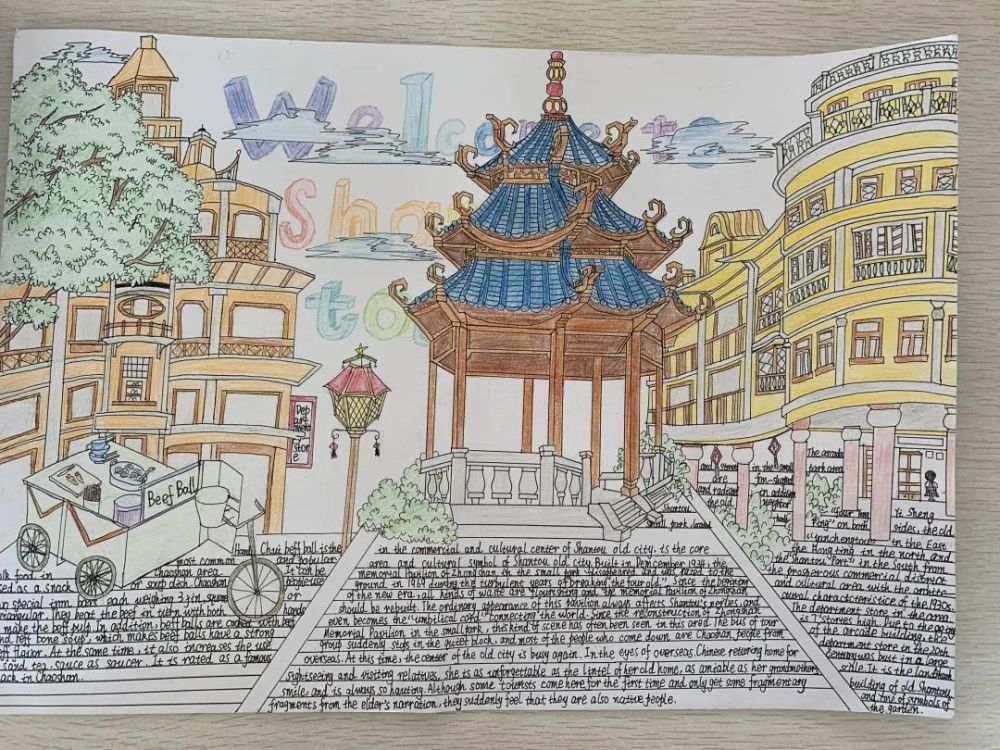 Welcome to
Sha
to
Dep
art
ment
store
Beef Ball
Hand Chui beff ball is the
most common and popular
folk food in Chaoshan area. It can be
used as a snack or soup dish. Chaoshan people use
special iron bars each weighing 3 jin, square
triangular. They beat the beef in turn with both hands
make the beef pulp. In addition, beff balls are cooked with beff
beff bone soup, which makes beff balls have a strong
beff flavor. At the same time, it also increases the use
sand tea sauce as saucer. It is rated as a famous
ack in Chaoshan.
Shantou
small park located
in the commercial and cultural center of Shantou old city, is the core
area and cultural symbol of Shantou old city. Built in Demcember 1934, the
memorial pavilion of Zhongshan in the small park and was razed to the
ground in 1969 during the turbulent years of breaking the four old". Since the beginning
of the new era, all kinds of waste are flourishing and the memorial Pavilion of Zhongshan
should be rebuilt. The ordinary appearance of this pavilion always affects Shantou's nerves, and
even becomes the "umbilical cord" connecting the world. Since the restruction of Zhongshan
Memorial Pavilion in the small park, this kind of scene has often been seen in this area. The bus of tour
group suddenly stops in the outer block, and most of the people who come down are Chaoshan people from
overseas. At this time, the center of the old city is busy again. In the eyes of overseas Chinese returing home for
sightseeing and visiting relatives, she is as unforgettable as the lintel of her old home, as amiable as her grandmother's
smile, and is always so hauting. Although some tourists come here for the first time and only get some fragmentary
fragments from the elder's narration, they suddenly feel that they are also native people.
and Street in the small The arcade
are fan-shaped park area
and radiates in addition
the old neighbor
"Four Yong Yi Sheng
Ping" on both sides, the old
in the East
the Hong ting in the north and
the Shantou "Port" in the south from
the prosperous commercial district
and cultural area with the archite
cural characteristice of the 1930s.
The department store in the area
is 7 stories high. Due to the
of the arcade building, the
department store in the 20th
century was bust in a large
scale. It is the landmark
building of old Shantou
and one of symbols of
the garden.